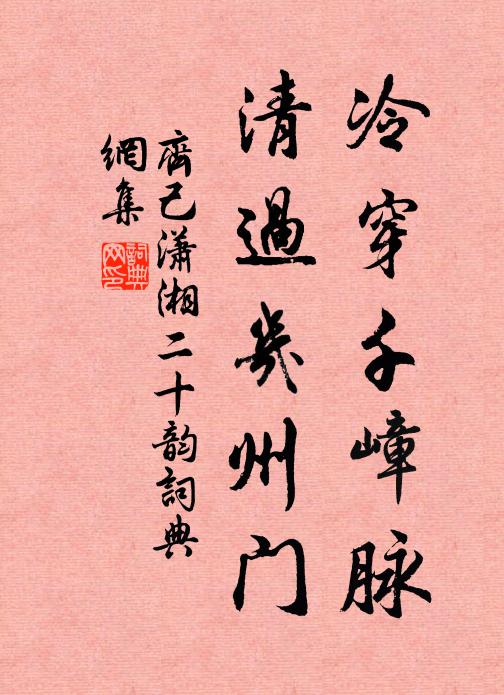 冷穿千嶂脉
清過幾州门
齊己瀟湘二十韵詞典
網集
詞典网印